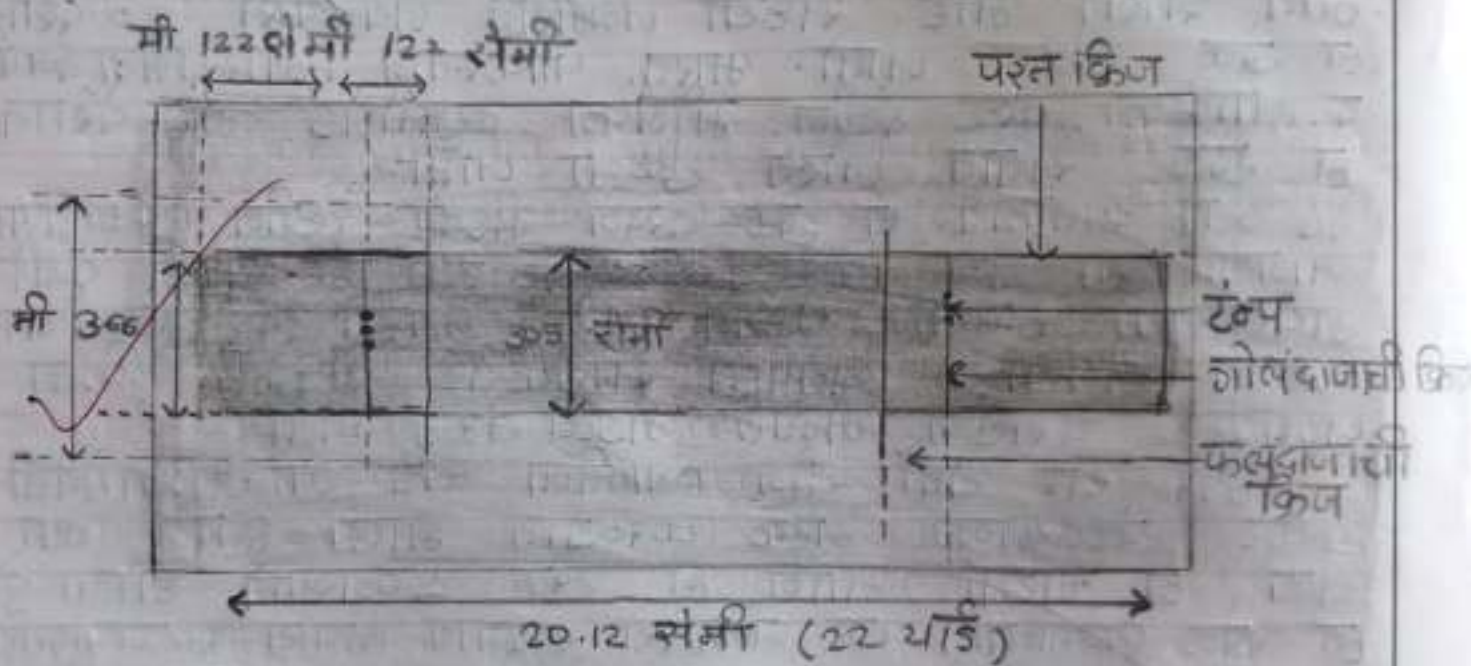 मी 122 सेमी 122 सेमी
परत क्रिज
मी 366
305 सेमी
टंम्प
गोलंदाजाची क्रि
फलंदाजाची
क्रिज
20.12 सेमी (22 यार्ड)